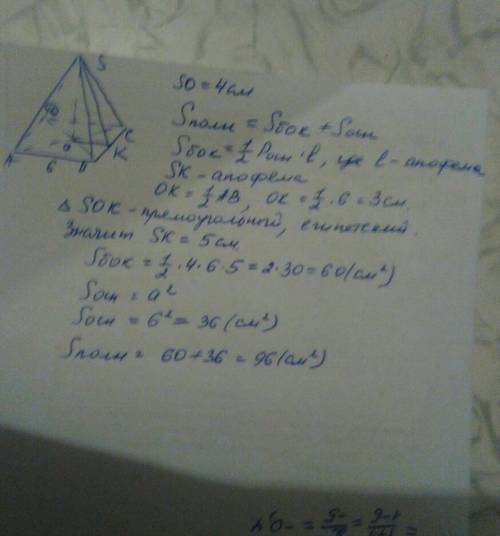 S
C
K
A
6
B
O
SO = 4 см
Sполн = Sбок + Sосн
Sбок = 1/2 Pосн · l, где l - апофема
SK - апофема
OK = 1/2 AB, OK = 1/2 · 6 = 3 см.
Δ SOK - прямоугольный, египетский.
Значит SK = 5 см
Sбок = 1/2 · 4 · 6 · 5 = 2 · 30 = 60 (см²)
Sосн = a²
Sосн = 6² = 36 (см²)
Sполн = 60 + 36 = 96 (см²)